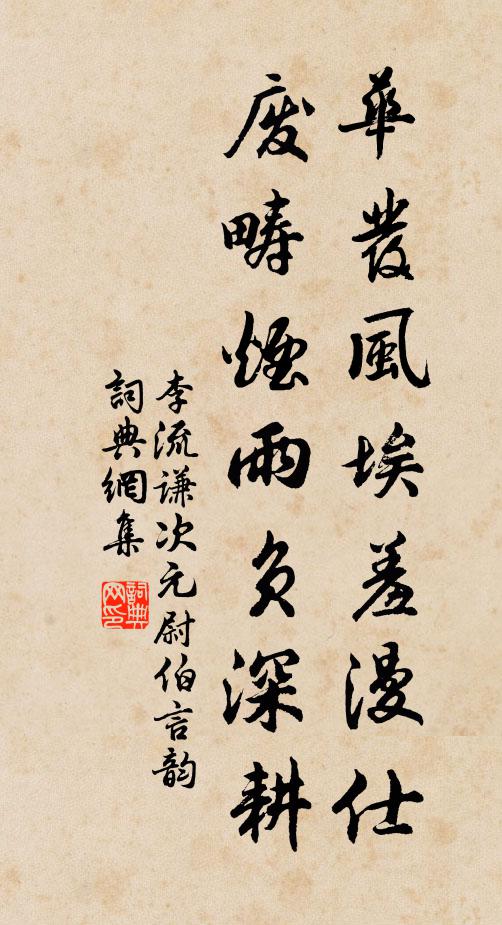 華發風埃羞漫仕
廢疇煙雨負深耕
李流謙次元尉伯言韵
詞典網集
詞典网印